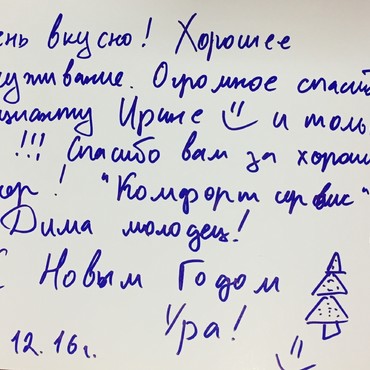 ень вкусно! Хорошее
уживание. Огромное спасиб
цианту Ирине и толь
!!! Спасибо вам за хорош
ер! "Комфорт сервис"
Дима молодец!
С Новым Годом
Ура!
12.16г.